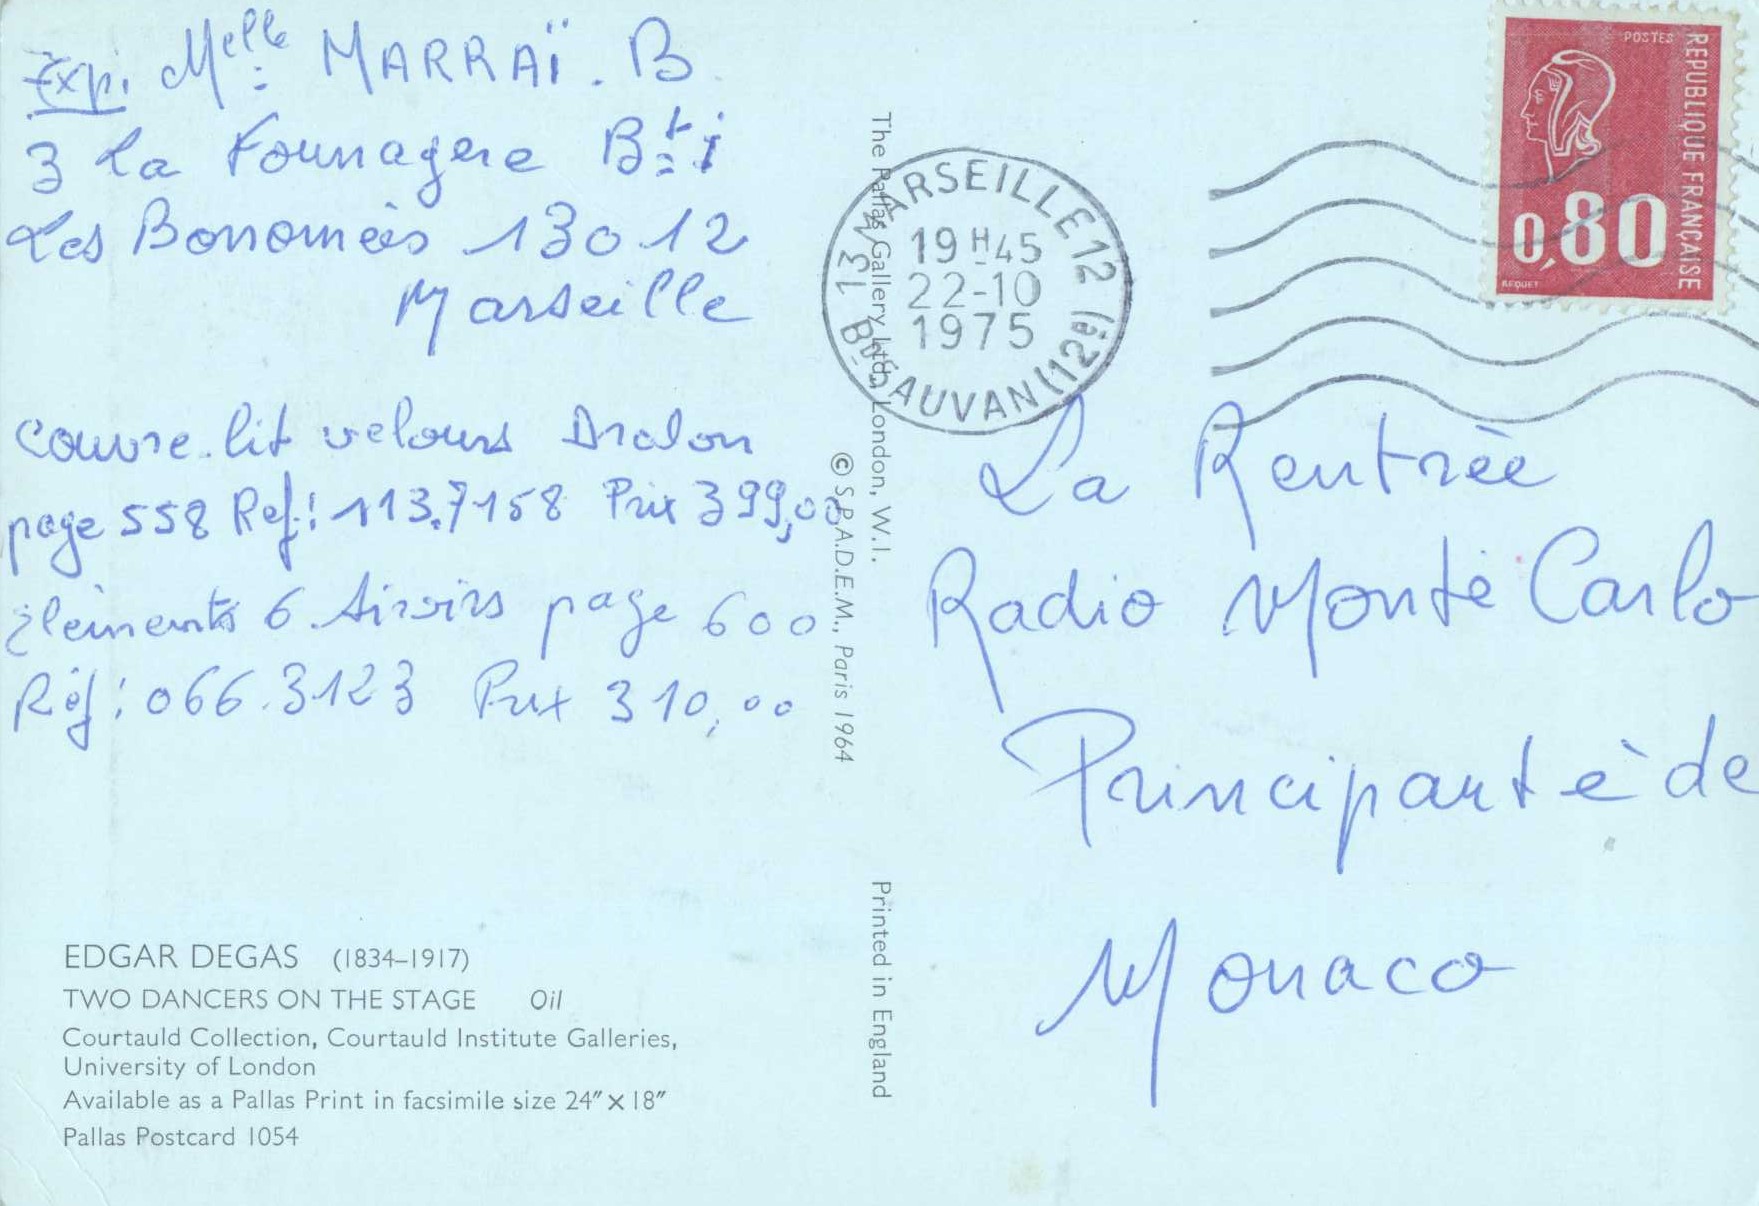 Exp. Melle MARRAÏ. B.
3 La Founagere Bt i
Les Bonomées 13012
Marseille
Couvre.lit velours Dralon
page 558 Ref: 113.7158 Prix 399,00
élèments 6 tiroirs page 600
Réf: 066.3123 Prix 310,00
EDGAR DEGAS (1834–1917)
TWO DANCERS ON THE STAGE Oil
Courtauld Collection, Courtauld Institute Galleries,
University of London
Available as a Pallas Print in facsimile size 24" x 18"
Pallas Postcard 1054
The Pallas Gallery Ltd., London, W.1.
© S.P.A.D.E.M., Paris 1964
Printed in England
13 MARSEILLE 12
19H45
22-10
1975
Bd SAUVAN (12e)
POSTES
REPUBLIQUE FRANÇAISE
0,80
BEQUET
La Rentrèe
Radio Monte Carlo
Principautè de
Monaco